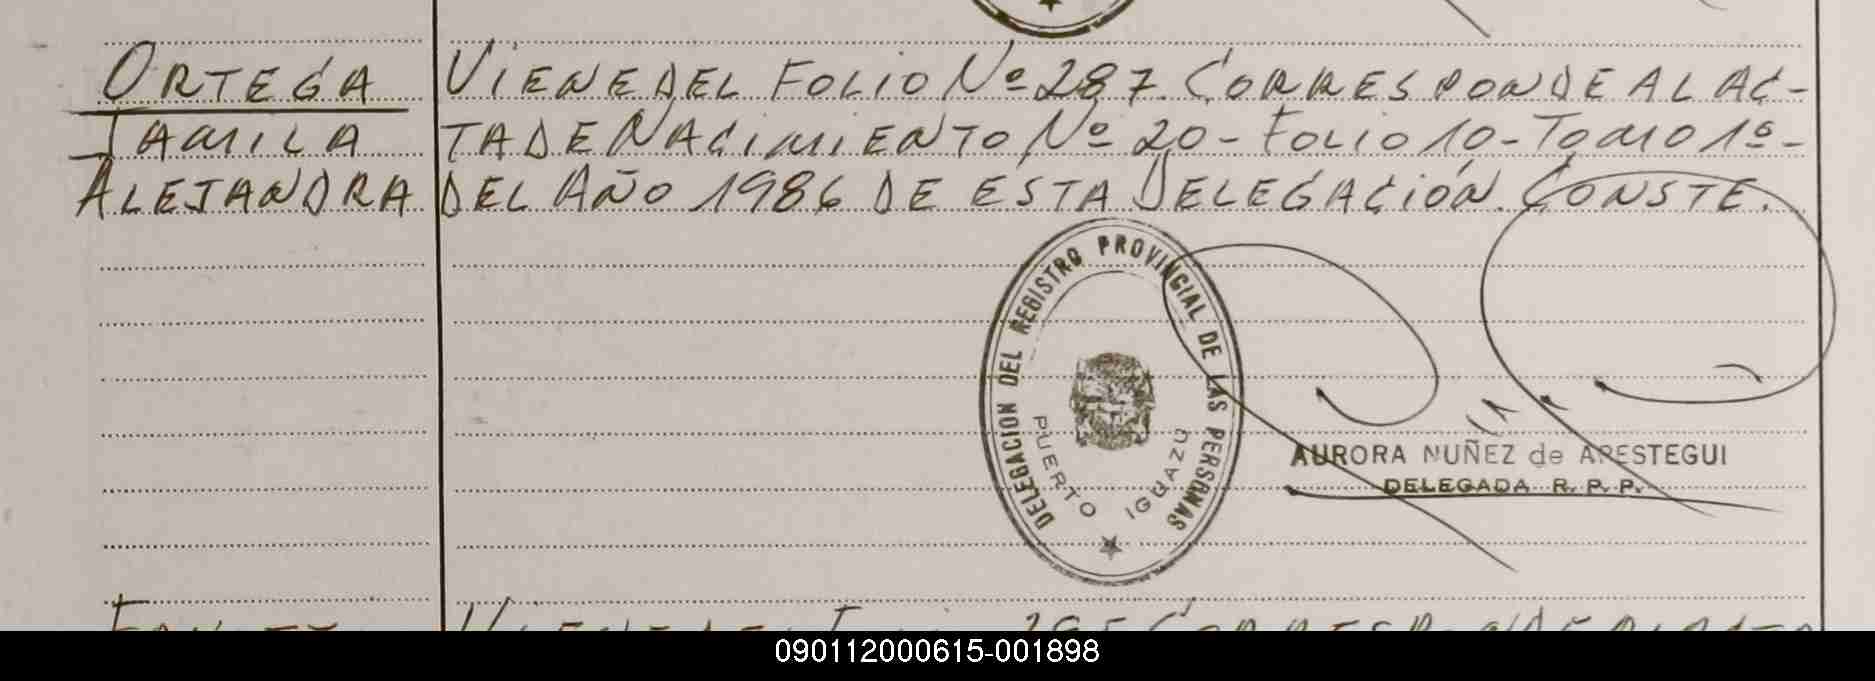 ORTEGA
JAMILA
ALEJANDRA
VIENE DEL FOLIO Nº 287. CORRESPONDE AL AC-
TA DE NACIMIENTO Nº 20 - FOLIO 10 - TOMO 1º -
DEL AÑO 1986 DE ESTA DELEGACIÓN. CONSTE.
DELEGACION DEL REGISTRO PROVINCIAL DE LAS PERSONAS
PUERTO IGUAZU
AURORA NUÑEZ de ARESTEGUI
DELEGADA R. P. P.
090112000615-001898